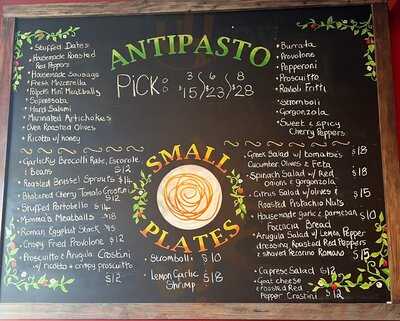 ANTIPASTO
PICK: 3 / 6 / 8
$15 $23 $28
• Stuffed Dates
• Housemade Roasted
Red Peppers
• Housemade Sausage
• Fresh Mozzarella
Mini Meatballs
• Sopressata
• Hard Salami
• Marinated Artichokes
• Oven Roasted Olives
• Ricotta w/ Honey
• Burrata
• Provolone
• Pepperoni
• Proscuitto
• Ravioli Fritti
• Stromboli
• Gorgonzola
• Sweet & Spicy
Cherry Peppers
SMALL
PLATES
Garlicky Broccolli Rabe, Escarole,
& Beans $12
• Roasted Brussel Sprouts $16
• Blistered Cherry Tomato Crostini
$12
• Stuffed Portobello $16
• Momma's Meatballs $18
• Roman Eggplant Stack $15
• Crispy Fried Provolone $12
• Proscuitto & Arugula Crostini
w/ ricotta + crispy proscuitto
$12
• Stromboli $10
• Lemon Garlic
Shrimp $18
• Greek Salad w/ tomatoes $18
Cucumber Olives & Feta
• Spinach Salad w/ Red $18
onions & gorgonzola
• Citrus Salad w/ olives & $15
Roasted Pistachio Nuts
• Housemade garlic & parmesan $10
Foccacia Bread
• Arugula Salad w/ Lemon Pepper
dressing, Roasted Red Peppers
& shaved Pecorino Romano $15
• Caprese Salad $12
• Goat cheese
& roasted Red
Pepper Crostini $12